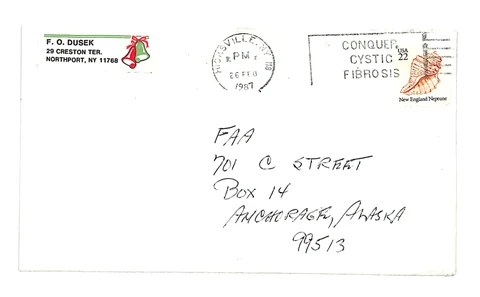 F. O. DUSEK
29 CRESTON TER.
NORTHPORT, NY 11768
HICKSVILLE, NY
PM
26 FEB
1987
CONQUER
CYSTIC
FIBROSIS
USA
22
New England Neptune
FAA
701 C STREET
BOX 14
ANCHORAGE, ALASKA
99513